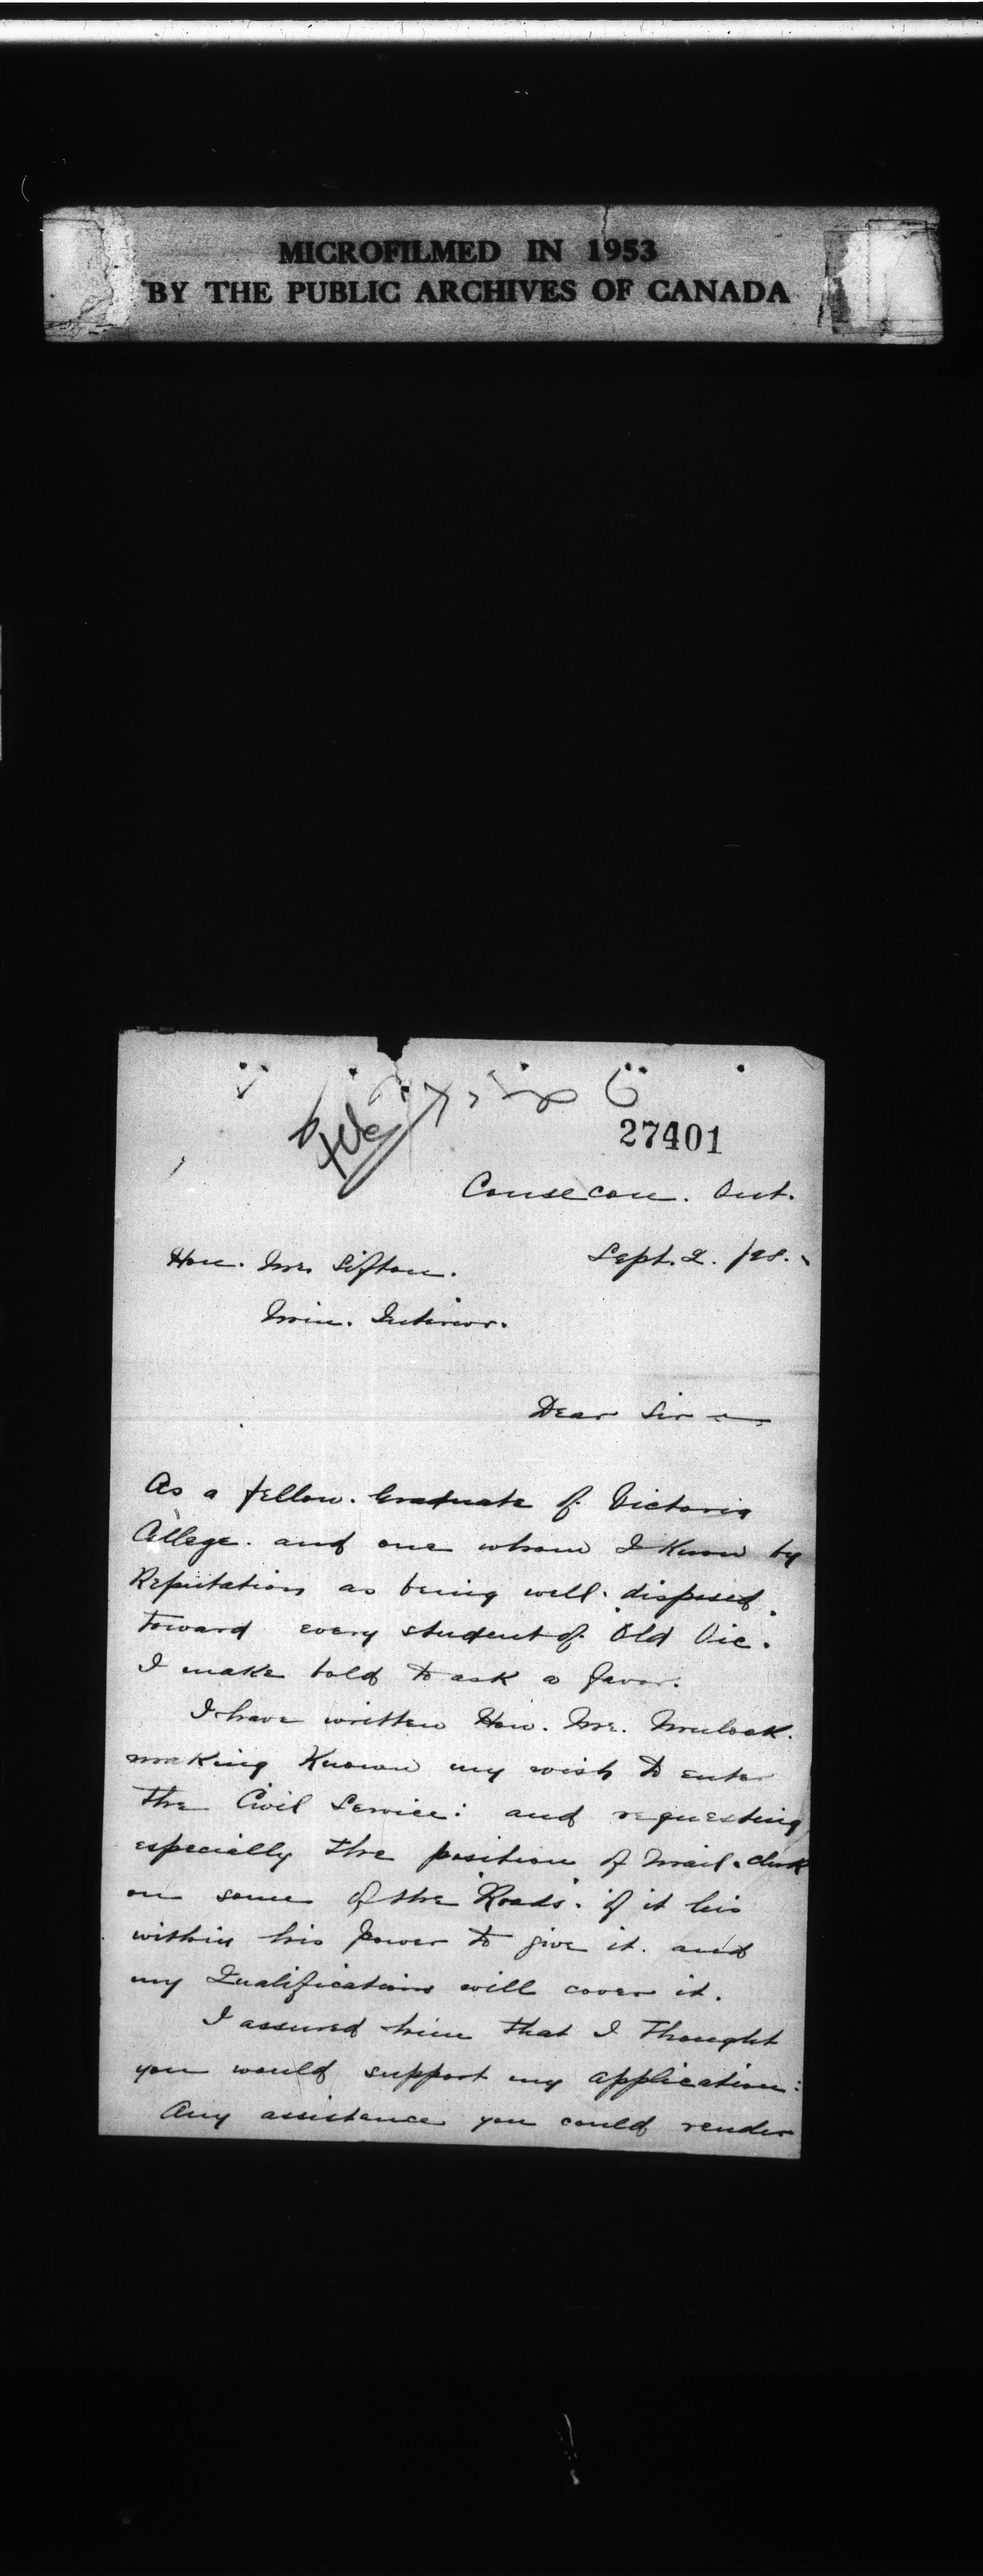 MICROFILMED IN 1953
BY THE PUBLIC ARCHIVES OF CANADA
file
27401
Consecon. Ont.
Sept. 2. /98.
Hon. Mr. Sifton.
Min. Interior.
Dear Sir
As a fellow. Graduate of Victoria
College. and one whom I Know by
Reputation as being well. disposed
toward every student of "Old Vic."
I make bold to ask a favor.
I have written Hon. Mr. Mulock.
making Known my wish to enter
the Civil Service: and requesting
especially the position of mail-clerk
on some of the "Roads". if it lies
within his power to give it. and
my Qualifications will cover it.
I assured him that I thought
you would support my application:
Any assistance you could render